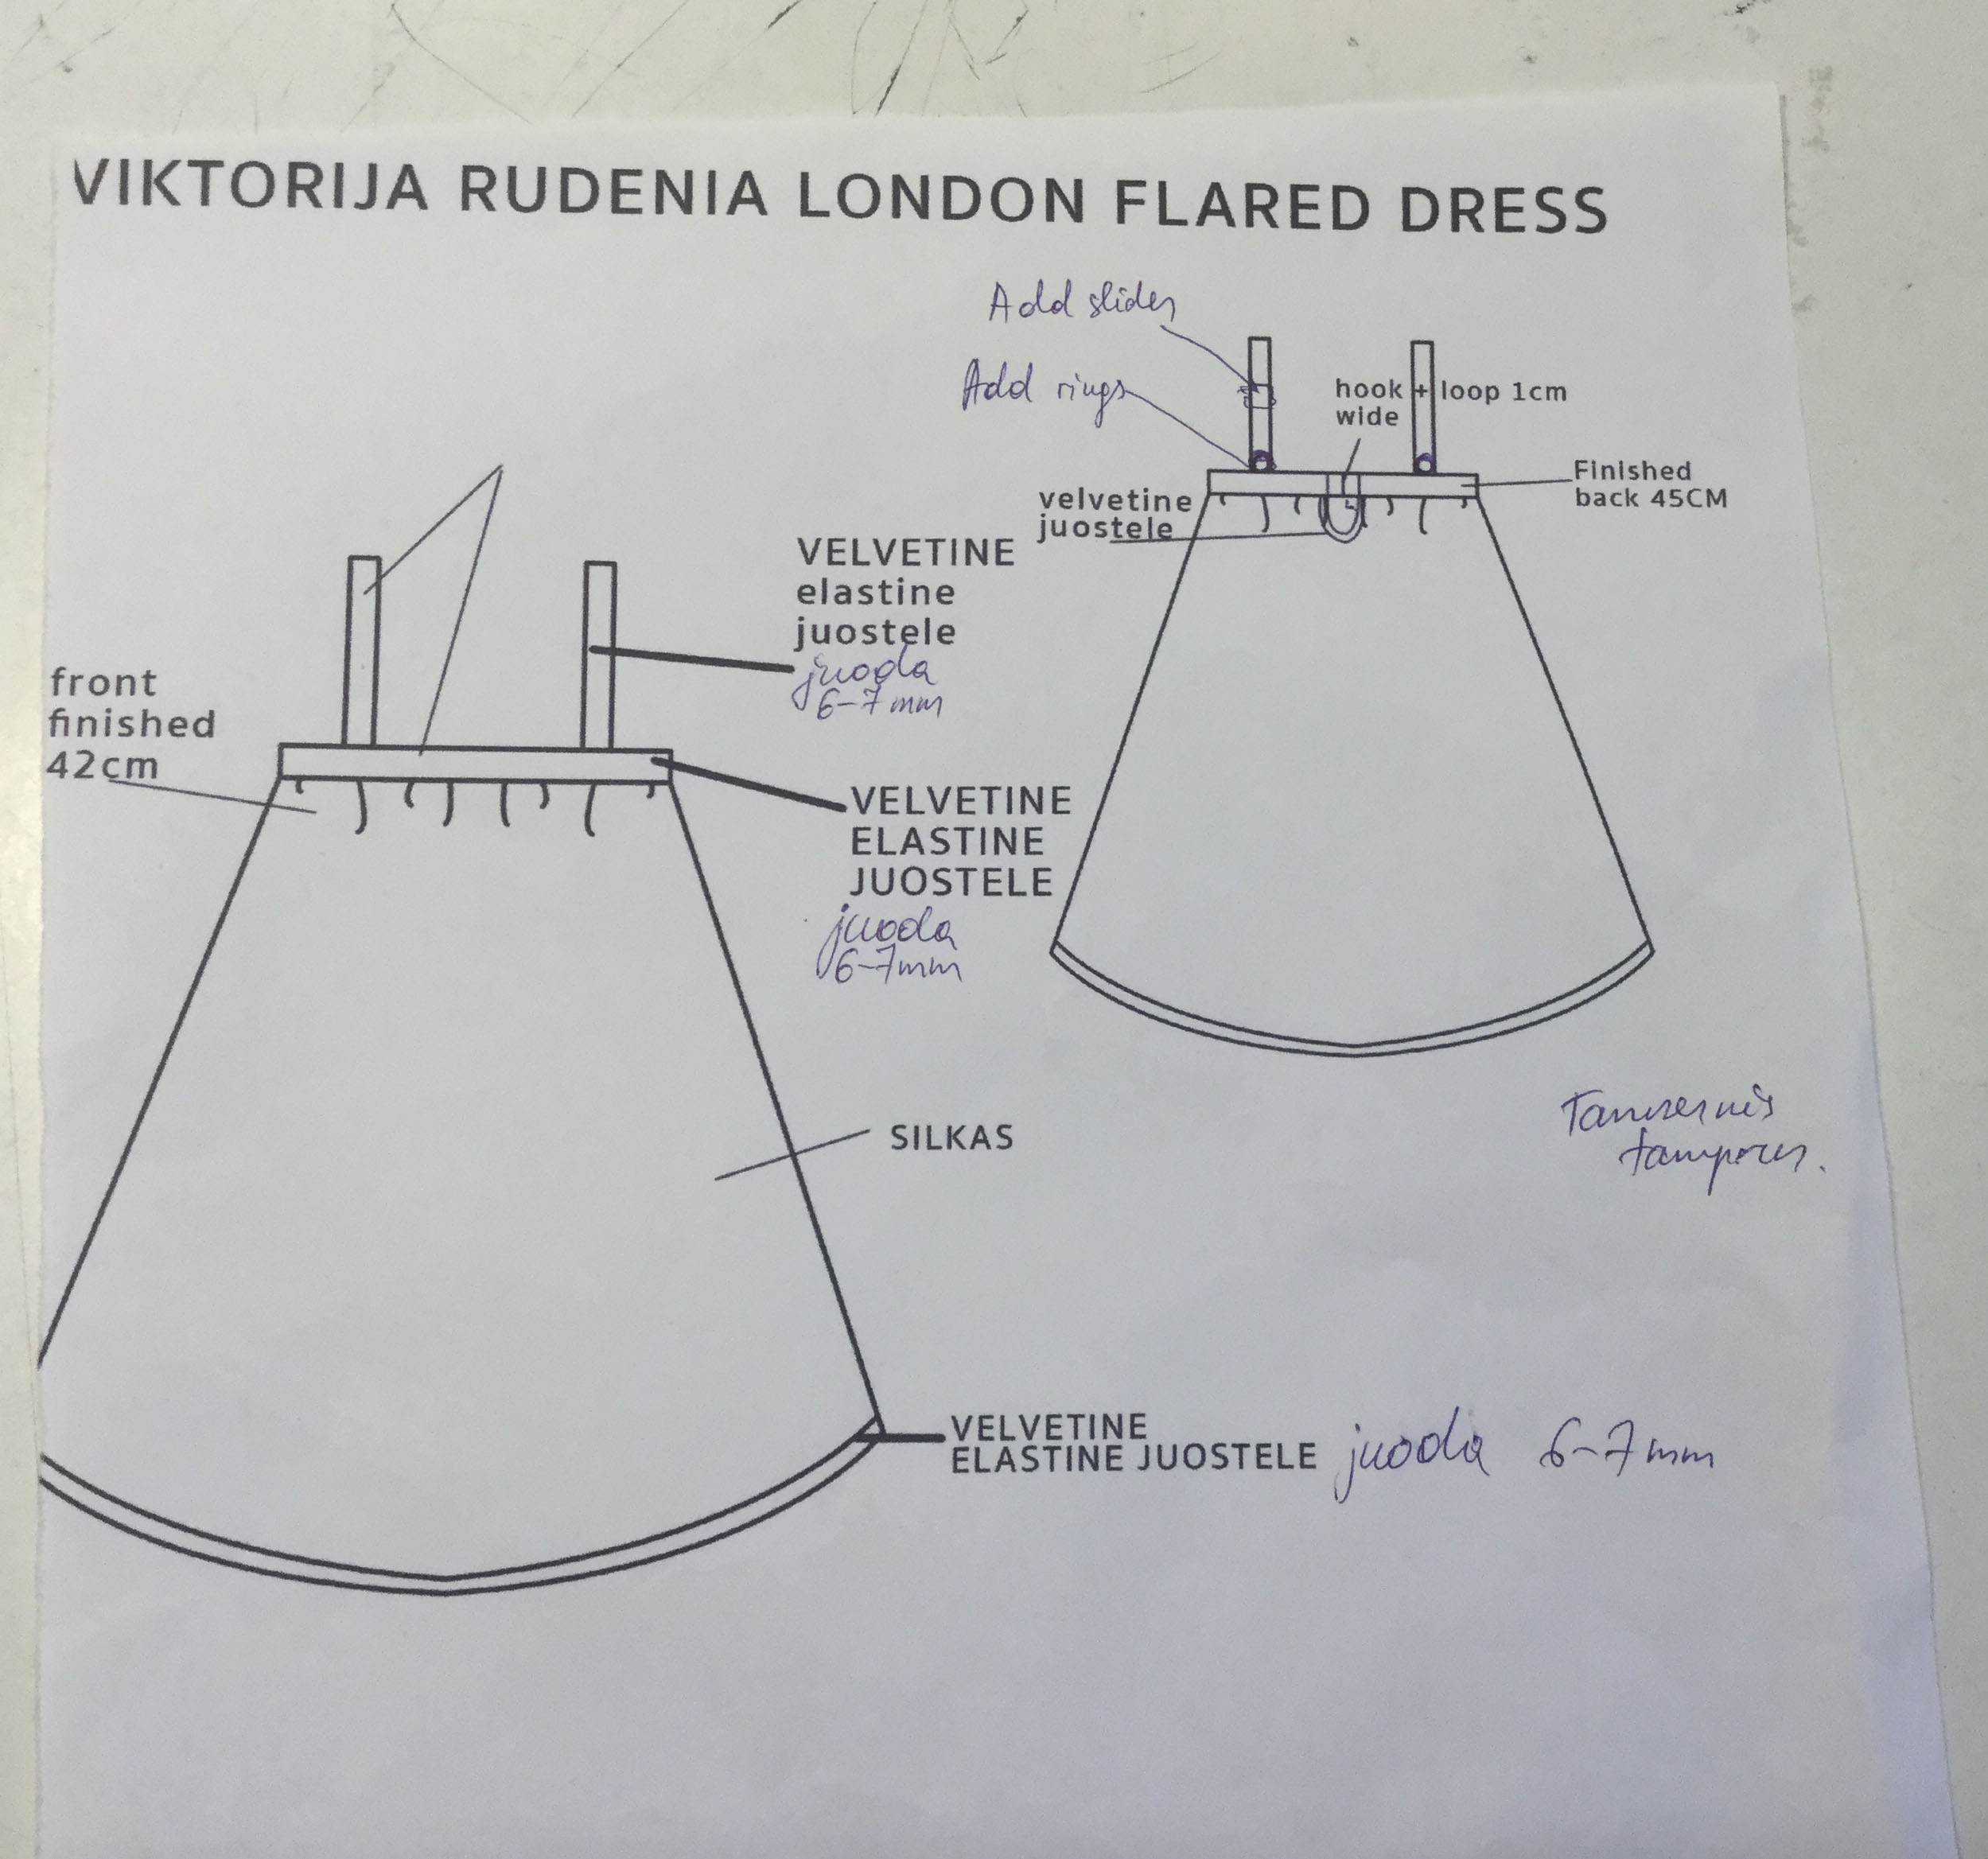 VIKTORIJA RUDENIA LONDON FLARED DRESS
Add slider
Add rings
hook + loop 1cm
wide
Finished
back 45CM
velvetine
juostele
VELVETINE
elastine
juostele
juoda
6-7mm
front
finished
42cm
VELVETINE
ELASTINE
JUOSTELE
juoda
6-7mm
SILKAS
VELVETINE
ELASTINE JUOSTELE juoda 6-7mm